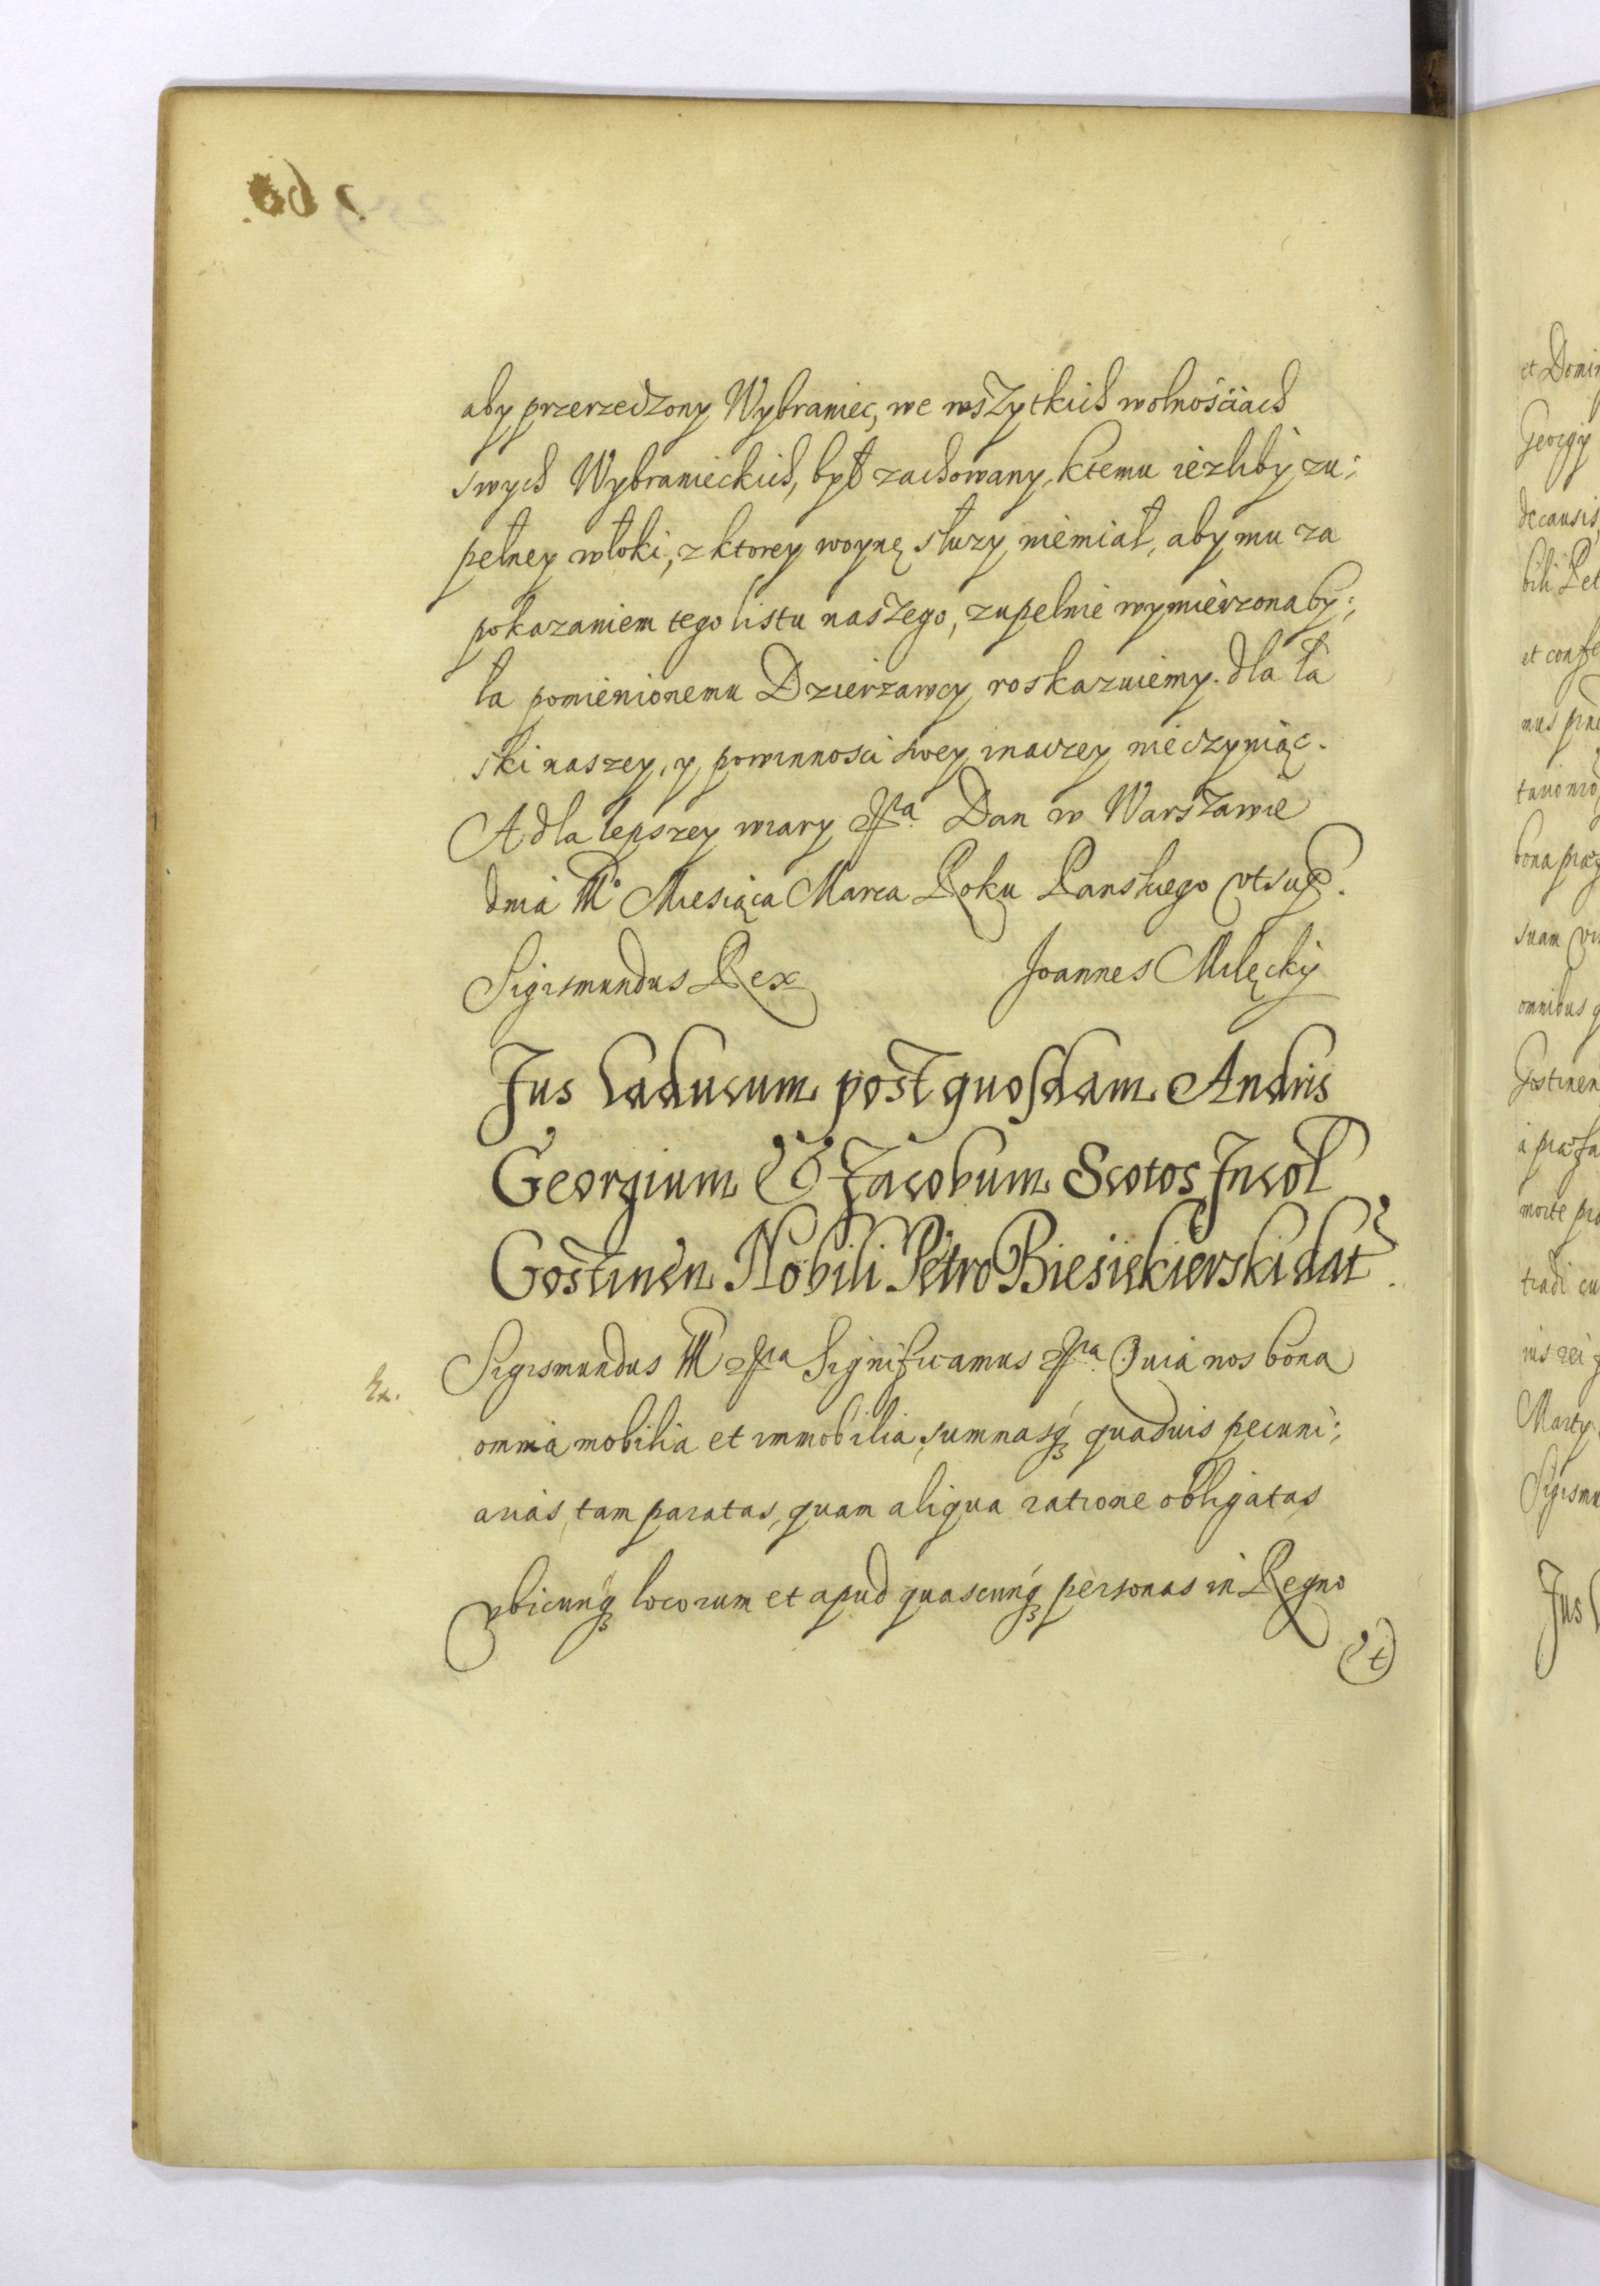 aby przerzeczony Wybraniec, we wszytkich wolnościach
swych Wybranieckich, był zachowany, ktemu iezliby zu:
pełney włoki, z ktorey woynę słuzy niemiał, aby mu za
pokazaniem tego listu naszego, zupełnie wymierzona by:
ła pomienionemu Dzierzawcy roskazuiemy. dla ła
ski naszey, y powinnosci swey inaczey nieczyniąc.
A dla lepszey wiary Dan w Warszawie
dnia Miesiąca Marca Roku Panskiego vt sup.
Sigismundus Rex Joannes Milęcky
Jus Caducum post quosdam Andris
Georgium & Jacobum Scotos Incol
Gostinen Nobili Petro Biesiekierski dat.
Ex.
Sigismundus III Significamus Quia nos bona
omnia mobilia et immobilia, summasq quaduis pecuni:
arias, tam paratas, quam aliqua ratione obligatas
vbicunq locorum et apud quascunq personas in Regno
et
et Domi
Georgy
de causis
bili Pet
et conf
tuuonio
bona
suam
omnibus q
Gostinen
morte
tradi cu
Sigismu
Jus